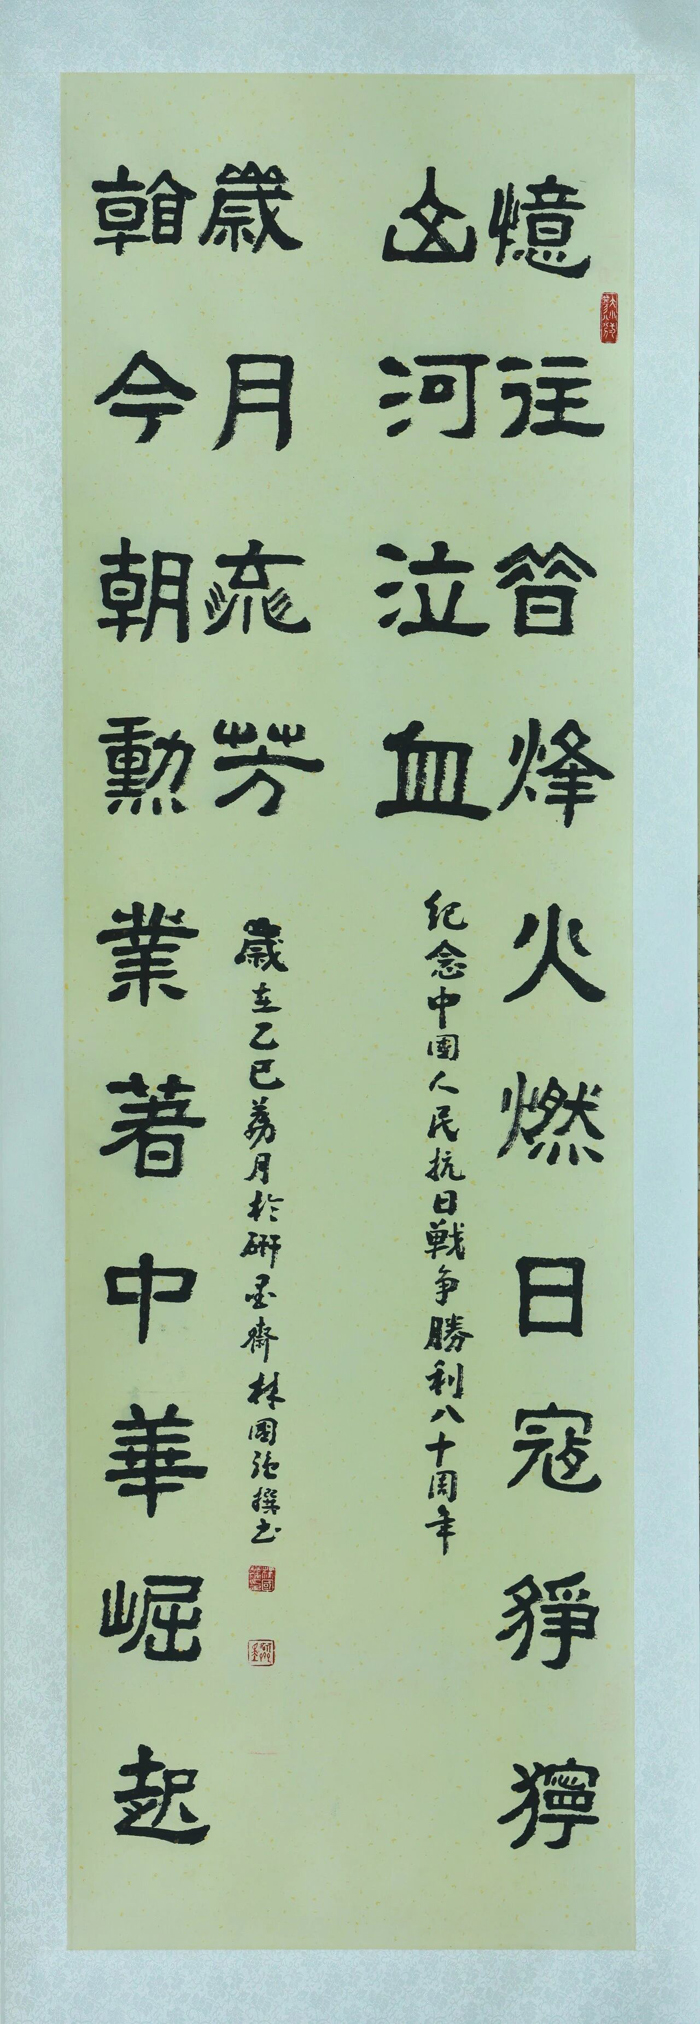 憶往昔烽火燃日寇猙獰
山河泣血
紀念中國人民抗日戰争勝利八十周年
看今朝勳業著中華崛起
歲月流芳
歲在乙巳荔月於研墨齋林國強撰书